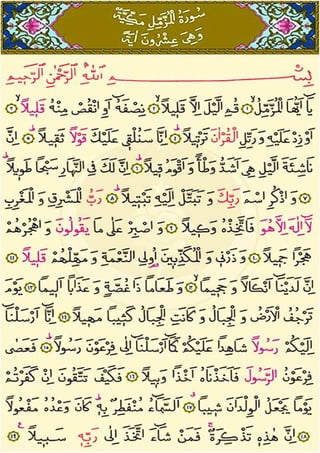 سُورَةُ الْمُزَّمِّلِ مَكِّيَّةٌ
وَهِيَ عِشْرُونَ آيَةً
بِسْمِ اللّٰهِ الرَّحْمٰنِ الرَّحِيمِ
يَٓا اَيُّهَا الْمُزَّمِّلُۙ ﴿١﴾ قُمِ الَّيْلَ اِلَّا قَلِيلاًۙ ﴿٢﴾ نِصْفَهُٓ اَوِ انْقُصْ مِنْهُ قَلِيلاًۙ ﴿٣﴾
اَوْ زِدْ عَلَيْهِ وَرَتِّلِ الْقُرْاٰنَ تَرْتِيلاًۜ ﴿٤﴾ اِنَّا سَنُلْقِي عَلَيْكَ قَوْلاً ثَقِيلاً ﴿٥﴾ اِنَّ
نَاشِئَةَ الَّيْلِ هِيَ اَشَدُّ وَطْـًٔا وَاَقْوَمُ قِيلاًۜ ﴿٦﴾ اِنَّ لَكَ فِي النَّهَارِ سَبْحاً طَوِيلاًۜ
﴿٧﴾ وَاذْكُرِ اسْمَ رَبِّكَ وَتَبَتَّلْ اِلَيْهِ تَبْتِيلاًۜ ﴿٨﴾ رَبُّ الْمَشْرِقِ وَالْمَغْرِبِ
لَٓا اِلٰهَ اِلَّا هُوَ فَاتَّخِذْهُ وَكِيلاً ﴿٩﴾ وَاصْبِرْ عَلٰى مَا يَقُولُونَ وَاهْجُرْهُمْ
هَجْراً جَمِيلاً ﴿١٠﴾ وَذَرْنِي وَالْمُكَذِّبِينَ اُو۬لِي النَّعْمَةِ وَمَهِّلْهُمْ قَلِيلاً ﴿١١﴾
اِنَّ لَدَيْنَٓا اَنْكَالاً وَجَحِيماًۙ ﴿١٢﴾ وَطَعَاماً ذَا غُصَّةٍ وَعَذَاباً اَلِيماً ﴿١٣﴾ يَوْمَ
تَرْجُفُ الْاَرْضُ وَالْجِبَالُ وَكَانَتِ الْجِبَالُ كَثِيباً مَهِيلاً ﴿١٤﴾ اِنَّٓا اَرْسَلْنَٓا
اِلَيْكُمْ رَسُولاً شَاهِداً عَلَيْكُمْ كَمَٓا اَرْسَلْنَٓا اِلٰى فِرْعَوْنَ رَسُولاًۜ ﴿١٥﴾ فَعَصٰى
فِرْعَوْنُ الرَّسُولَ فَاَخَذْنَاهُ اَخْذاً وَبِيلاً ﴿١٦﴾ فَكَيْفَ تَتَّقُونَ اِنْ كَفَرْتُمْ
يَوْماً يَجْعَلُ الْوِلْدَانَ شِيباًۗ ﴿١٧﴾ اَلسَّمَٓاءُ مُنْفَطِرٌ بِهِۜ كَانَ وَعْدُهُ مَفْعُولاً
﴿١٨﴾ اِنَّ هٰذِهِ تَذْكِرَةٌۚ فَمَنْ شَٓاءَ اتَّخَذَ اِلٰى رَبِّهِ سَبِيلاً۟ ﴿١٩﴾